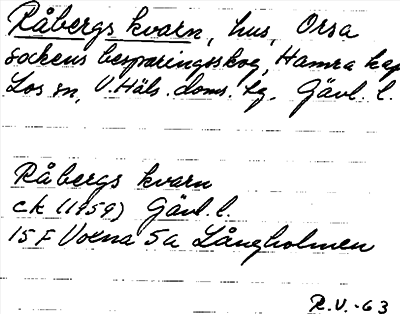 Råbergs kvarn, hus, Orsa
sockens besparingsskog, Hamra kap
Los sn, V. Häls. doms. tg. Gävl. l.
Råbergs kvarn
ck (1959) Gävl. l.
15 F Voxna 5a Långholmen
R.V. -63